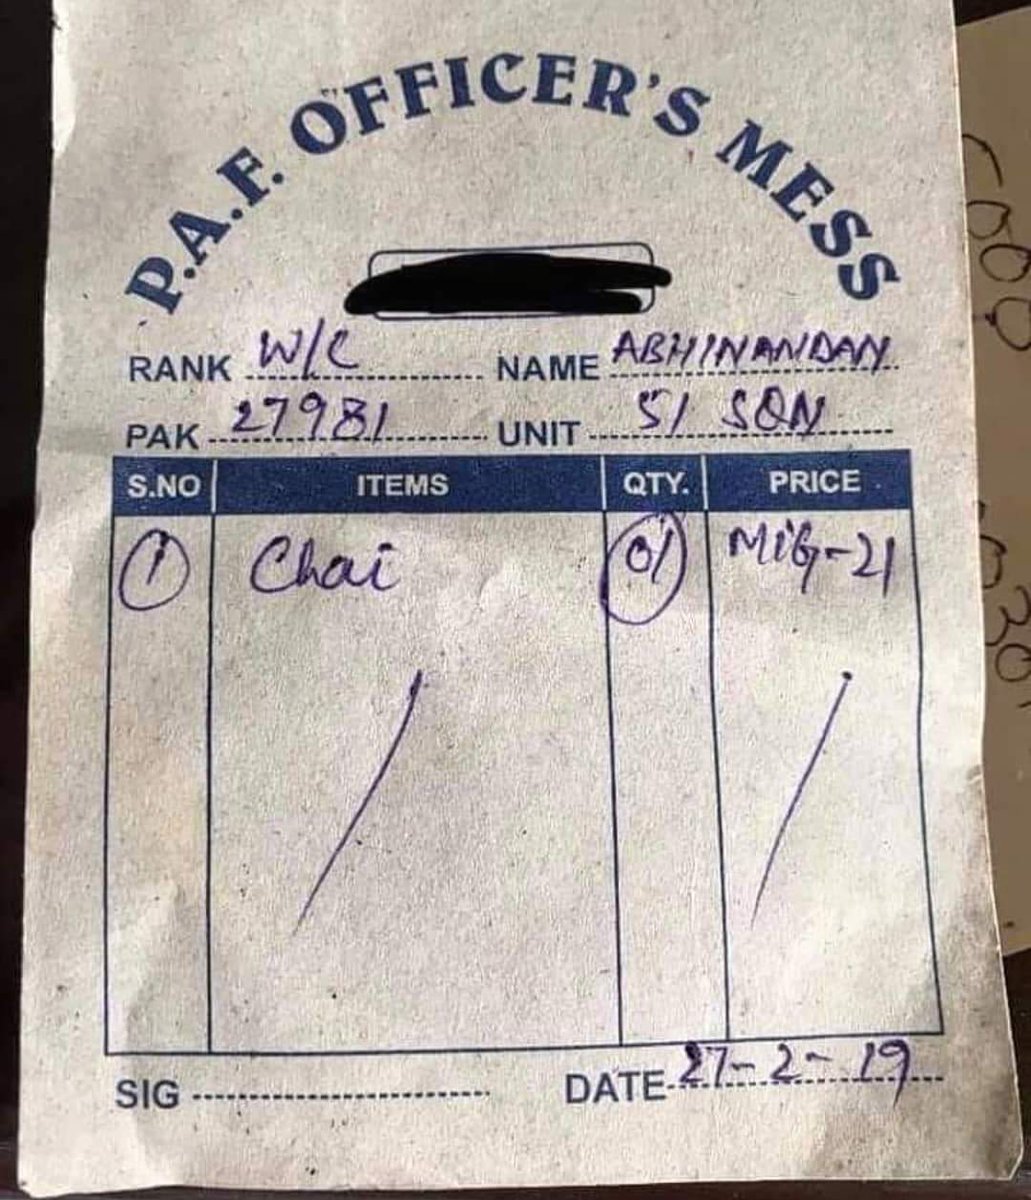 P.A.F. OFFICER'S MESS
RANK W/C NAME ABHINANDAN
PAK 27981 UNIT 51 SQN
S.NO ITEMS QTY. PRICE
1 Chai 01 MiG-21
SIG DATE 27-2-19